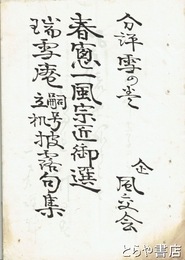 分評雪の巻
企 風交会
春窓一風宗近御選
瑞雪庵嗣号立机披露句集
とらや書店